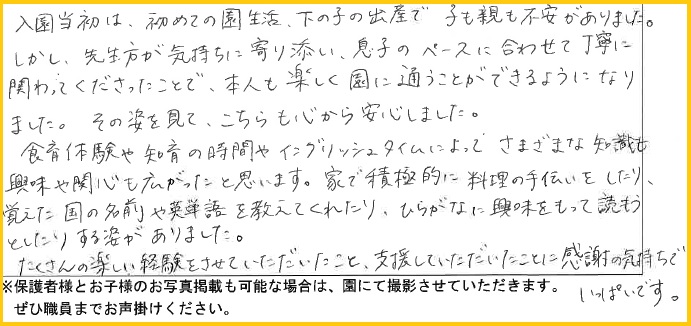 入園当初は、初めての園生活、下の子の出産で 子も親も不安がありました。
しかし、先生方が気持ちに寄り添い、息子のペースに合わせて丁寧に
関わってくださったことで、本人も楽しく園に通うことができるようになり
ました。その姿を見て、こちらも心から安心しました。
食育体験や知育の時間やイングリッシュタイムによって さまざまな知識も
興味や関心も広がったと思います。家で積極的に料理の手伝いをしたり、
覚えた国の名前や英単語を教えてくれたり、ひらがなに興味をもって読もう
としたりする姿がありました。
たくさんの楽しい経験をさせていただいたこと、支援していただいたことに感謝の気持ちで
いっぱいです。
※保護者様とお子様のお写真掲載も可能な場合は、園にて撮影させていただきます。
ぜひ職員までお声掛けください。